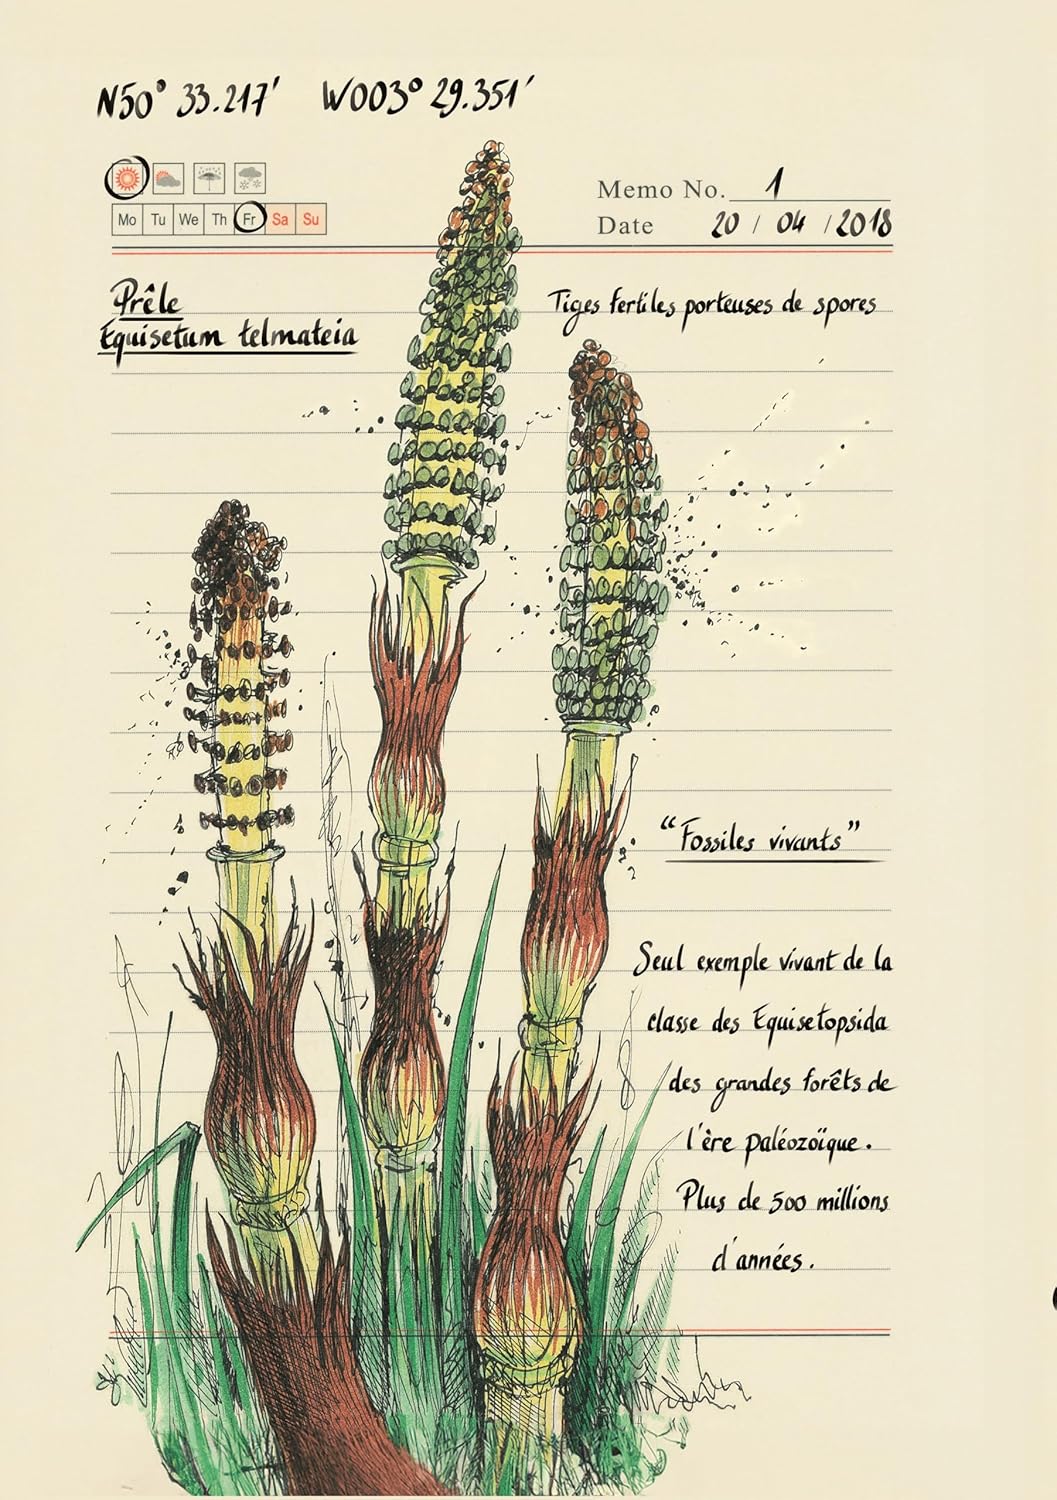 N50° 33.217' W003° 29.351'
Mo Tu We Th Fr Sa Su
Memo No. 1
Date 20 / 04 / 2018
Prêle
Equisetum telmateia
Tiges fertiles porteuses de spores
“Fossiles vivants”
Seul exemple vivant de la
classe des Equisetopsida
des grandes forêts de
l'ère paléozoïque.
Plus de 500 millions
d'années.